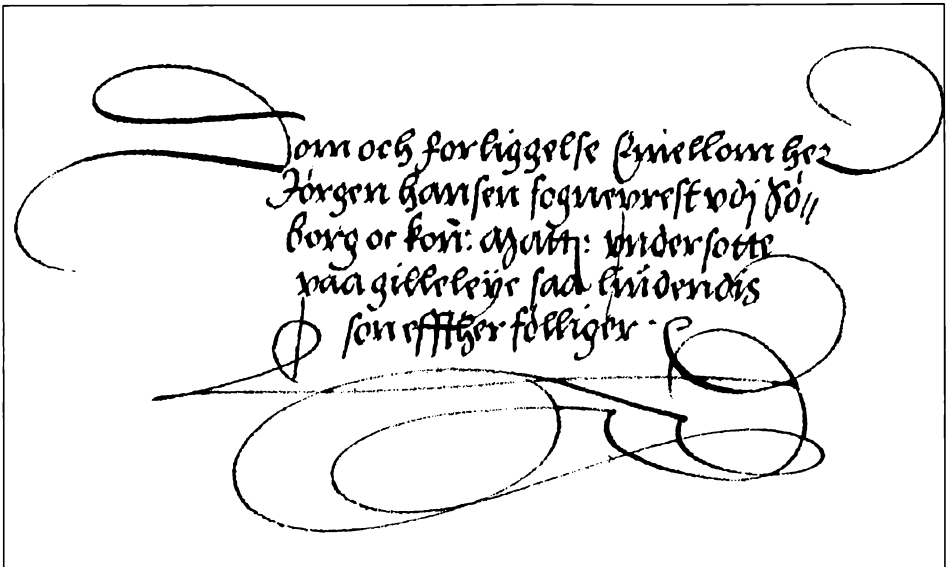 Dom och forliggelse Emellom her
Jörgen Hansen sogneprest vdj Sö//
borg oc kon: Matt: vndersotte
paa gilleleye saa liudendis
som effther fölliger.